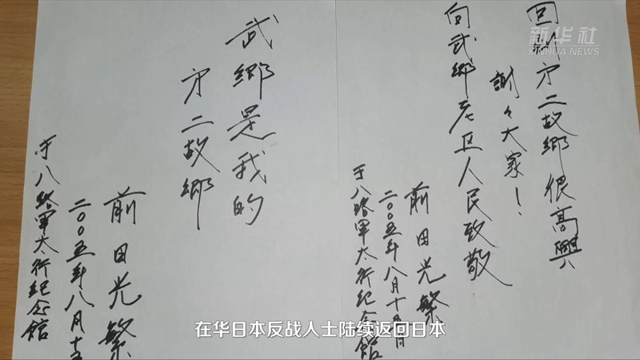 新华社
XINHUA NEWS
回第二故鄉很高興
謝々大家！
向武鄉老区人民致敬
前田光繁
二〇〇五年八月十五日
于八路軍太行紀念館
武鄉是我的
第二故鄉
前田光繁
二〇〇五年八月十五
于八路軍太行紀念館
在华日本反战人士陆续返回日本